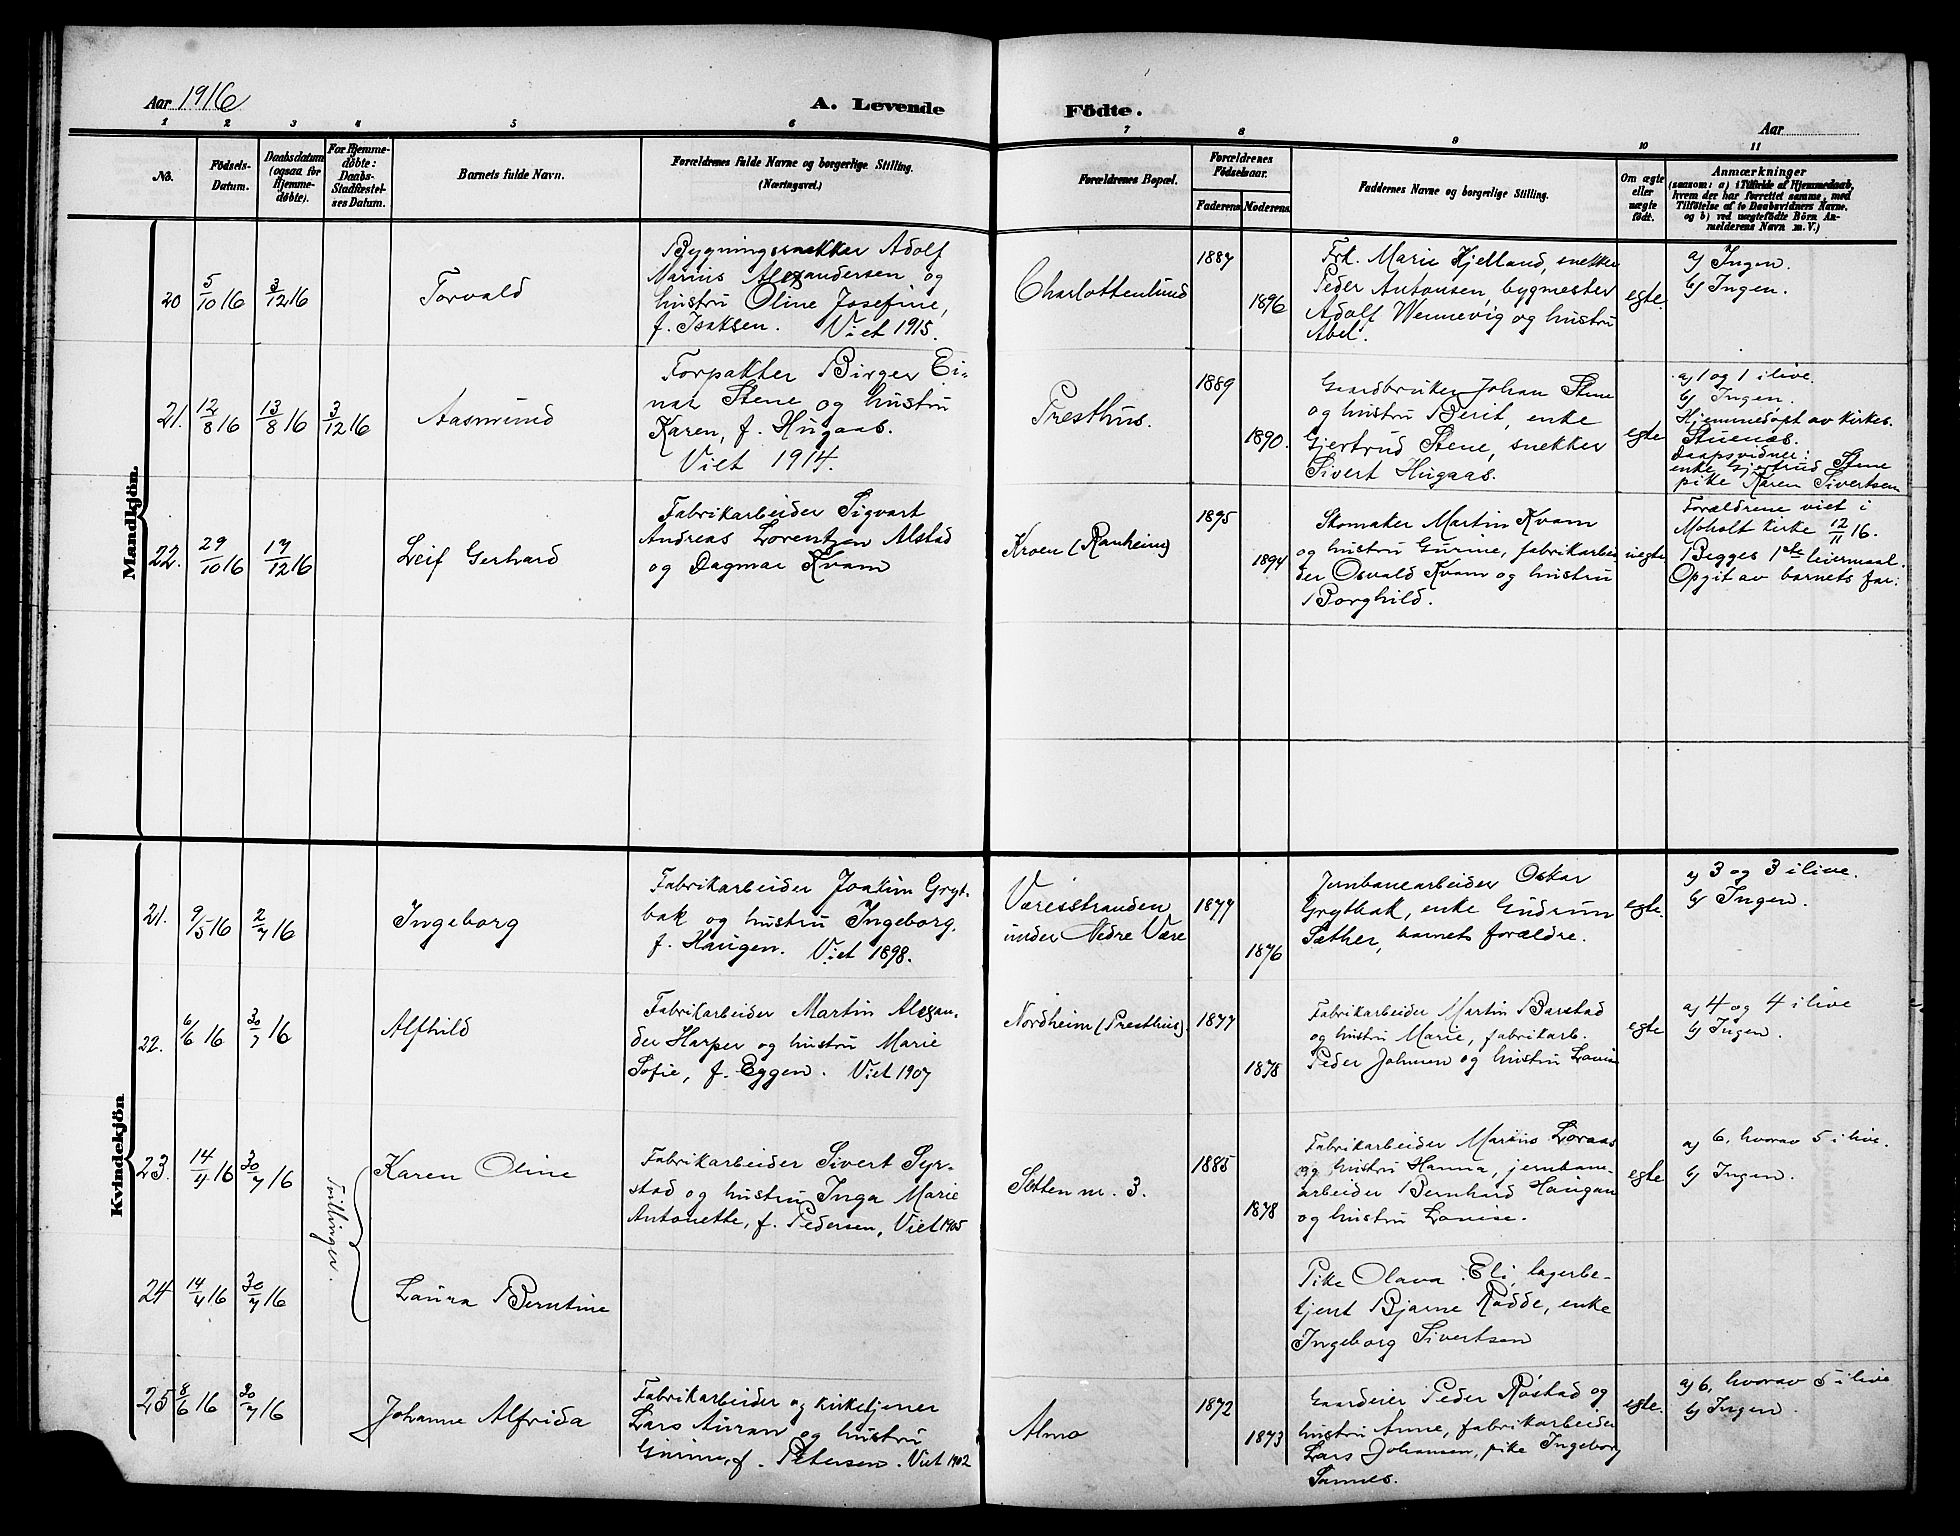 Aar 1916
A. Levende Födte.
Aar
1 2 3 4 5 6 7 8 9 10 11
No.
Födsels-
Datum.
Daabsdatum
(ogsaa for
Hjemme-
döbte).
For Hjemme-
døbte:
Daabs-
Stadfæstel-
ses Datum.
Barnets fulde Navn.
Forældrenes fulde Navne og borgerlige Stilling.
(Næringsvei.)
Forældrenes Bopæl.
Forældrenes
Födselsaar.
Faderens. Moderens.
Faddernes Navne og borgerlige Stilling.
Om ægte
eller
uægte
födt.
Anmærkninger
(saasom: a) i Tilfælde af Hjemmedaab,
hvem der har forrettet samme, med
Tilföielse af to Daabsvidners Navne.
og b) ved uægtefödte Börn An-
melderens Navn m. V.)
Mandkjön.
20 5/10 16 3/12 16
Torvald
Bygningssnekker Adolf
Marius Alexandersen og
hustru Oline Josefine,
f. Isaksen. Viet 1915.
Charlottenlund
1887
1896
Frk. Marie Hjelland, snekker
Peder Antonsen, bygmester
Adolf Wennevig og hustru
Abel.
egte.
a) Ingen.
b) Ingen.
21. 12/8 16 13/8 16 3/12 16
Aasmund
Forpakter Birger Ei-
nar Stene og hustru
Karen, f. Hugaas.
Viet 1914.
Presthus.
1889
1890.
Gaardbruker Johan Stene
og hustru Berit, enke
Gjertrud Stene, snekker
Sivert Hugaas.
egte
a) 1 og 1 i live.
b) Ingen.
Hjemmedøpt av kirkes.
Stuenæs.
Daapsvidner:
enke Gjertrud Stene
pike Karen Sivertsen
22. 29/10 16 17/12 16
Leif Gerhard
Fabrikarbeider Sigvart
Andreas Lorentzen Alstad
og Dagmar Kvam
Kroen (Ranheim)
1895
1894
Skomaker Martin Kvam
og hustru Gurine, fabrikarbei-
der Osvald Kvam og hustru
Borghild.
uegte
Forældrene viet i
Moholt kirke 12/11 16.
Begges 1ste leiermaal.
Opgit av barnets far.
Kvindekjön
21. 9/5 16 2/7 16
Ingeborg
Fabrikarbeider Joakim Gryt-
bak og hustru Ingeborg,
f. Haugen. Viet 1898.
Væresstranden
under Nedre Være
1877
1876
Jernbanearbeider Oskar
Grytbak, enke Gudrun
Sæther, barnets forældre.
egte.
a) 3 og 3 i live.
b) Ingen.
22. 6/6 16 30/7 16
Alfhild
Fabrikarbeider Martin Alexan-
der Harper og hustru Marie
Sofie, f. Eggen. Viet 1907
Nordheim (Presthus).
1877
1878
Fabrikarbeider Martin Barstad
og hustru Marie, fabrikarb.
Peder Johnsen og hustru Lovise
egte
a) 4 og 4 i live
b) Ingen.
23. 14/4 16 30/7 16
Tvillinger.
Karen Oline
Fabrikarbeider Sivert Syr-
stad og hustru Inga Marie
Antonette, f. Pedersen, Viet 1905
Sletten nr. 3.
1885
1878
Fabrikarbeider Marius Loraas
og hustru Hanna, jernbane-
arbeider Bernhard Haugan
og hustru Lovise.
egte
a) 6, hvorav 5 i live.
b) Ingen.
24 14/4 16 30/7 16
Laura Berntine
Pike Olava Eli, lagerbe-
tjent Bjarne Rødde, enke
Ingeborg Sivertsen
25 8/6 16 30/7 16
Johanne Alfrida
Fabrikarbeider og kirketjener
Lars Auran og hustru
Gurine, f. Petersen. Viet 1902
Almo
1872
1873
Gaardeier Peder Røstad og
hustru Anne, fabrikarbeider
Lars Johansen, pike Ingeborg
Sannes.
egte.
a) 6, hvorav 5 i live
b) Ingen.